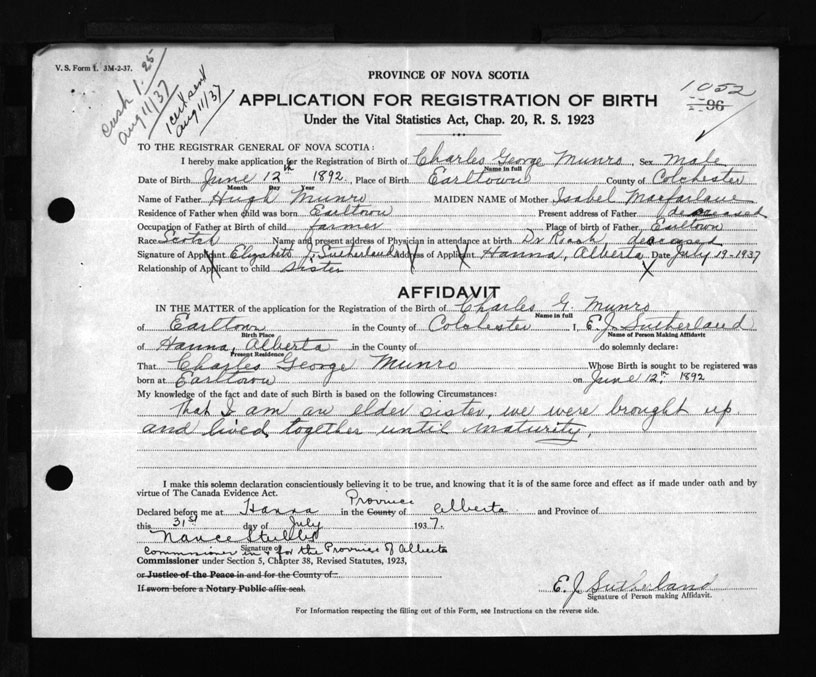 V. S. Form 1. 3M-2-37.
cash 1.25
Aug 11/37
1 cert sent
Aug 11/37
PROVINCE OF NOVA SCOTIA
1052
96
APPLICATION FOR REGISTRATION OF BIRTH
Under the Vital Statistics Act, Chap. 20, R. S. 1923
TO THE REGISTRAR GENERAL OF NOVA SCOTIA:
I hereby make application for the Registration of Birth of Charles George Munro, Sex Male
Name in full
Date of Birth June 12th 1892, Place of Birth Earltown County of Colchester
Month Day Year
Name of Father Hugh Munro MAIDEN NAME of Mother Isabel Macfarlane
Residence of Father when child was born Earltown Present address of Father deceased
Occupation of Father at Birth of child farmer Place of birth of Father, Earltown
Race Scotch Name and present address of Physician in attendance at birth Dr Roach, deceased
Signature of Applicant Elizabeth J. Sutherland Address of Applicant Hanna, Alberta Date July 19-1937
Relationship of Applicant to child sister
AFFIDAVIT
IN THE MATTER of the application for the Registration of the Birth of Charles G. Munro
Name in full
of Earltown in the County of Colchester I, E. J. Sutherland
Birth Place Name of Person Making Affidavit
of Hanna, Alberta in the County of do solemnly declare:
Present Residence
That Charles George Munro Whose Birth is sought to be registered was
born at Earltown on June 12th 1892
My knowledge of the fact and date of such Birth is based on the following Circumstances:
That I am an elder sister, we were brought up
and lived together until maturity.
I make this solemn declaration conscientiously believing it to be true, and knowing that it is of the same force and effect as if made under oath and by
virtue of The Canada Evidence Act.
Province
Declared before me at Hanna in the County of Alberta and Province of
this 31st day of July 1937.
Signature of
Commissioner in & for the Province of Alberta
Commissioner under Section 5, Chapter 38, Revised Statutes, 1923,
or Justice of the Peace in and for the County of
If sworn before a Notary Public affix seal.
E. J. Sutherland
Signature of Person making Affidavit.
For Information respecting the filling out of this Form, see Instructions on the reverse side.